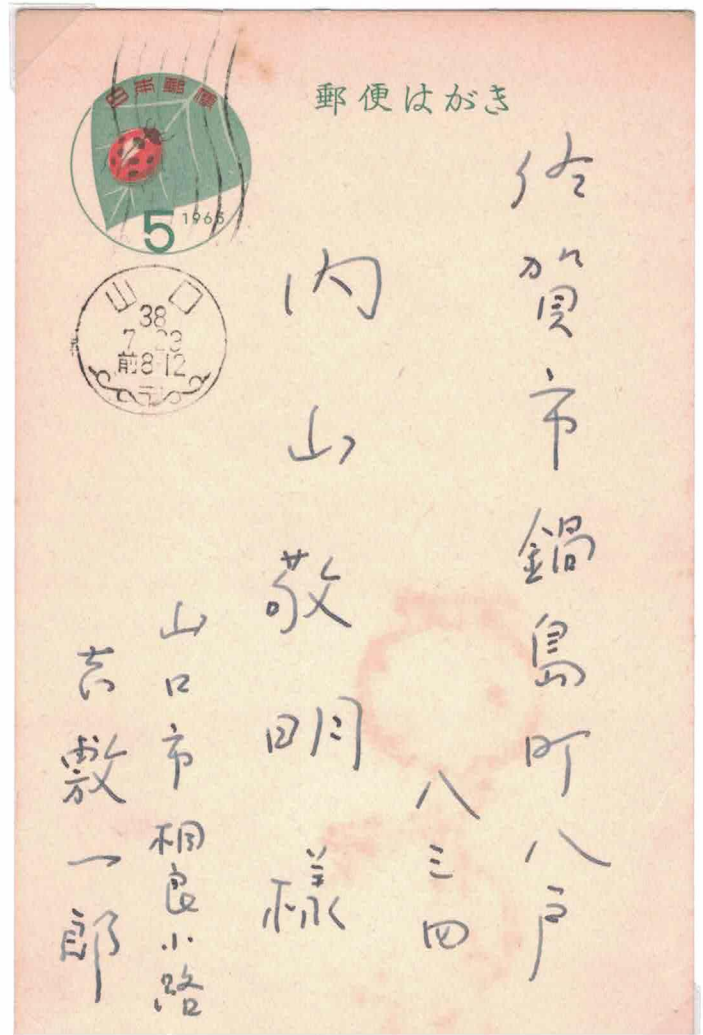 郵便はがき
日本郵便
5
1963
山口
38
7 23
前8-12
佐賀市鍋島町八戸
八三四
内山敬明様
山口市相良小路
吉敷一郎